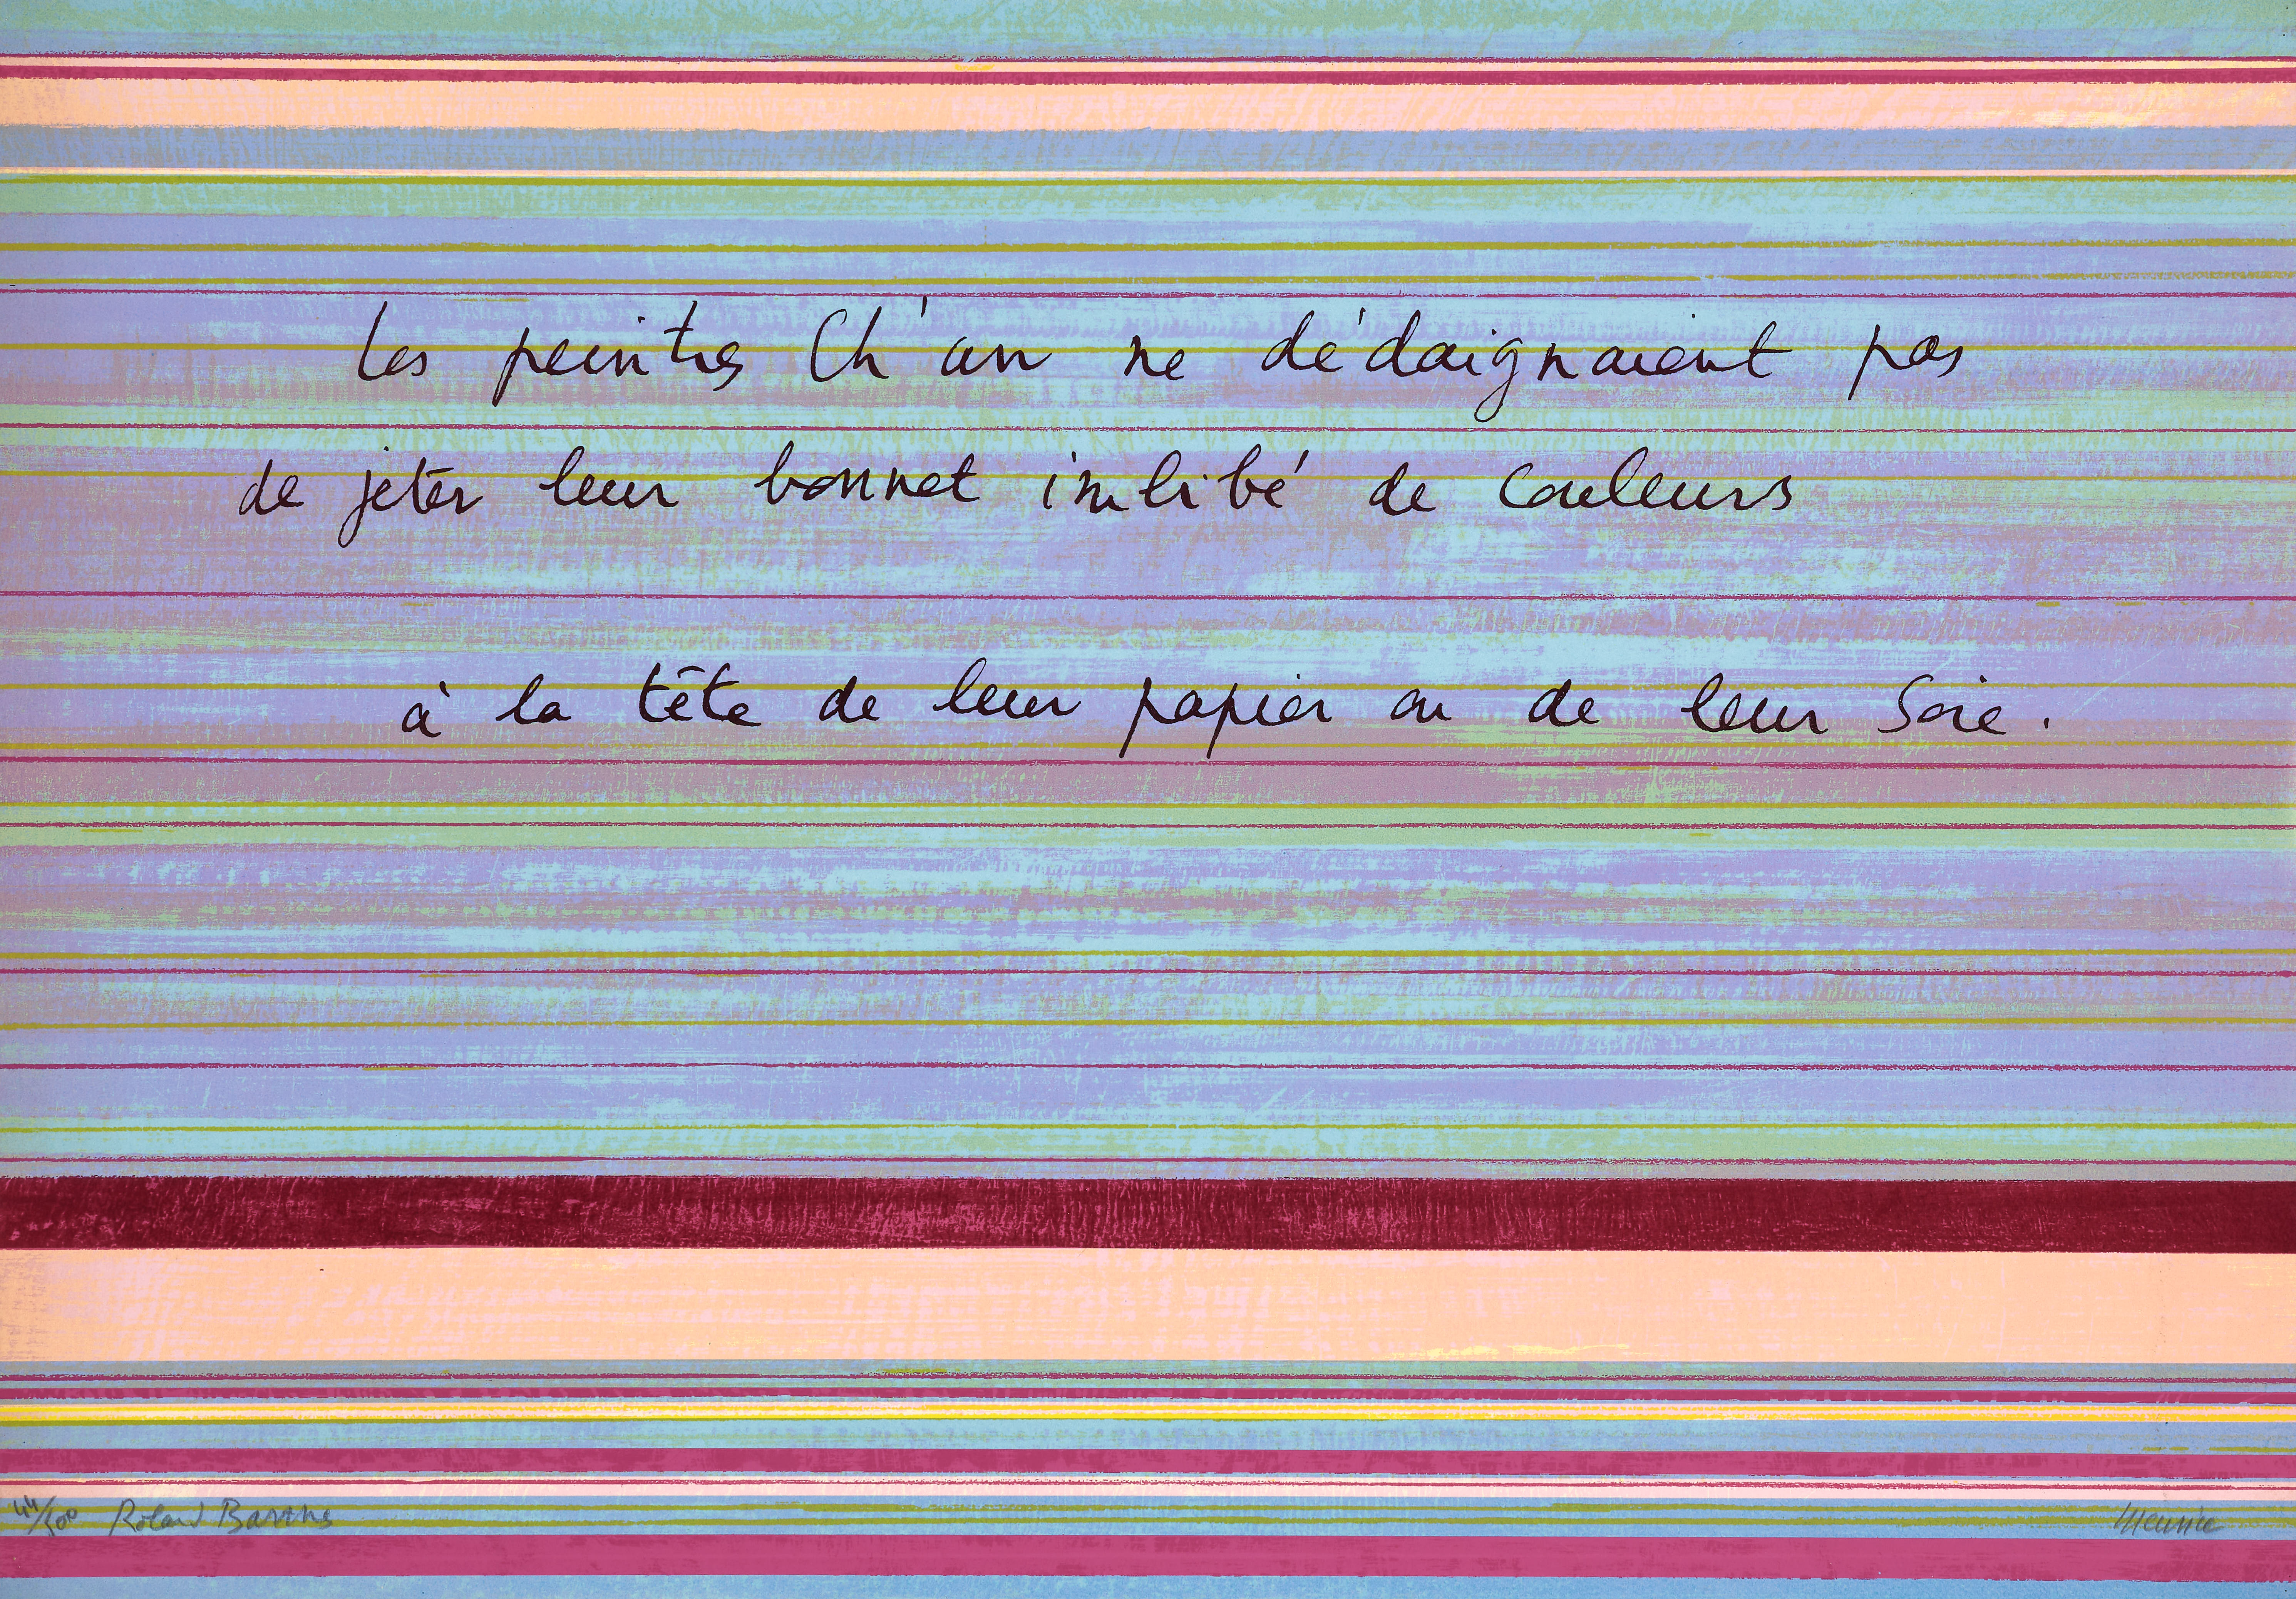 Les peintres Ch'an ne dédaignaient pas
de jeter leur bonnet imbibé de couleurs
à la tête de leur papier ou de leur soie.
44/500 Roland Barthes
Meurice